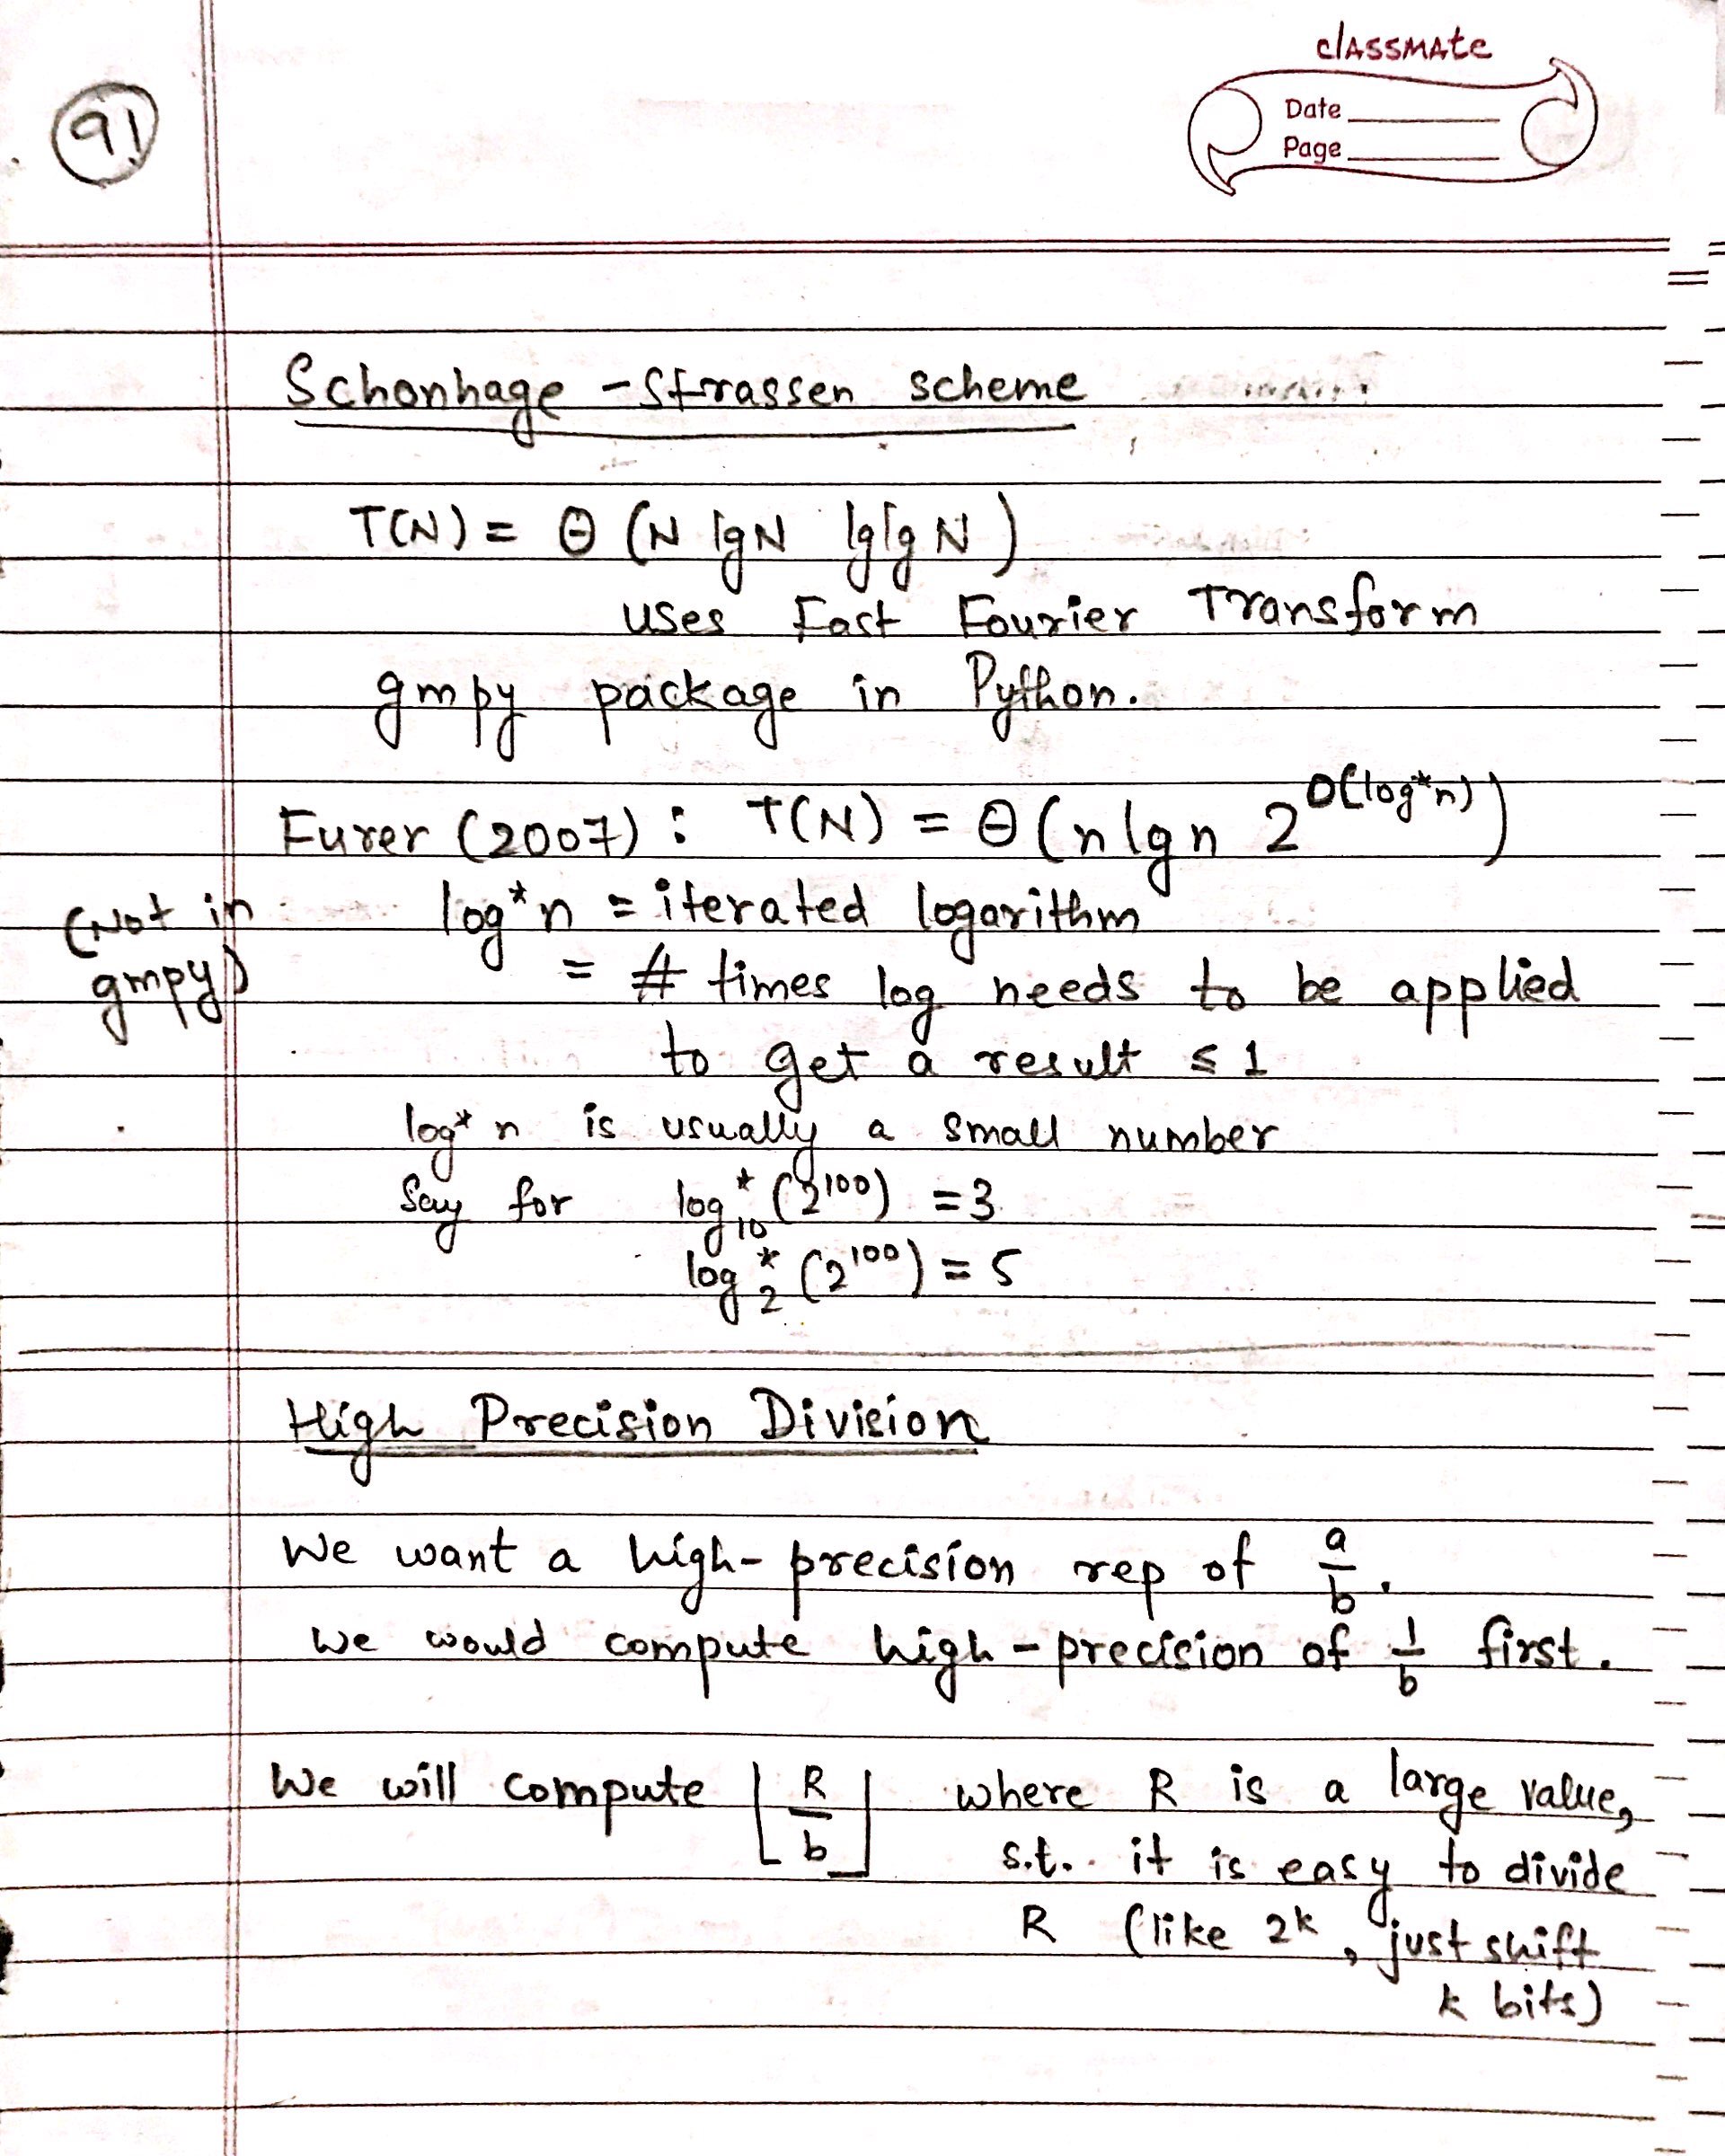 classmate
Date
Page
91
Schonhage - Strassen scheme
T(N) = Θ (N lgN lglg N)
uses Fast Fourier Transform
gmpy package in Python.
Furer (2007) : T(N) = Θ (n lg n 2^O(log*n))
(Not in gmpy)
log*n = iterated logarithm
= # times log needs to be applied
to get a result ≤ 1
log* n is usually a small number
Say for log*₁₀ (2^100) = 3
log*₂ (2^100) = 5
High Precision Division
We want a high-precision rep of a/b.
We would compute high-precision of 1/b first.
We will compute ⌊R/b⌋ where R is a large value,
s.t. it is easy to divide
R (like 2^k, just shift
k bits)